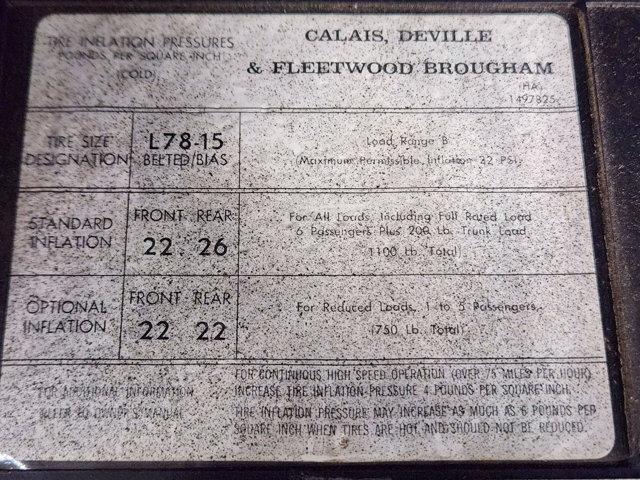 TIRE INFLATION PRESSURES
POUNDS PER SQUARE INCH
(COLD)
CALAIS, DEVILLE
& FLEETWOOD BROUGHAM
HA
1497825
TIRE SIZE
DESIGNATION
L78-15
BELTED/BIAS
Load Range B
(Maximum Permissible Inflation 32 PSI)
STANDARD
INFLATION
FRONT REAR
22 26
For All Loads, Including Full Rated Load
6 Passengers Plus 200 Lb. Trunk Load
(1100 Lb. Total)
OPTIONAL
INFLATION
FRONT REAR
22 22
For Reduced Loads, 1 to 5 Passengers,
(750 Lb. Total)
FOR ADDITIONAL INFORMATION
REFER TO OWNER'S MANUAL
FOR CONTINUOUS HIGH SPEED OPERATION (OVER 75 MILES PER HOUR)
INCREASE TIRE INFLATION PRESSURE 4 POUNDS PER SQUARE INCH.
TIRE INFLATION PRESSURE MAY INCREASE AS MUCH AS 6 POUNDS PER
SQUARE INCH WHEN TIRES ARE HOT AND SHOULD NOT BE REDUCED.